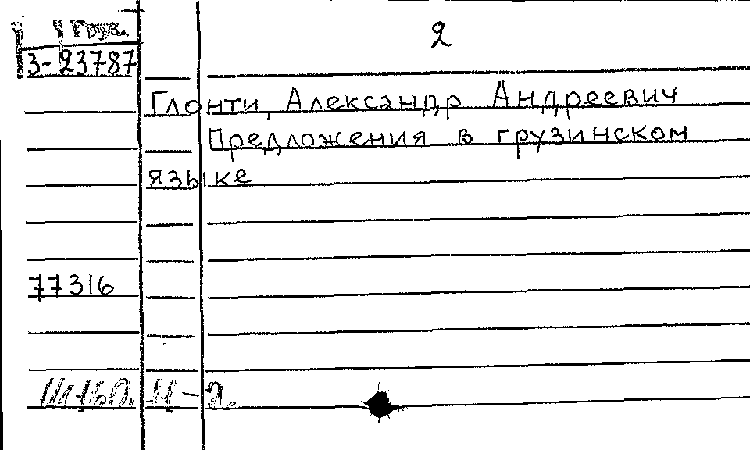 Груз.
2
3-23787
Глонти, Александр Андреевич
Предложения в грузинском
языке
77316